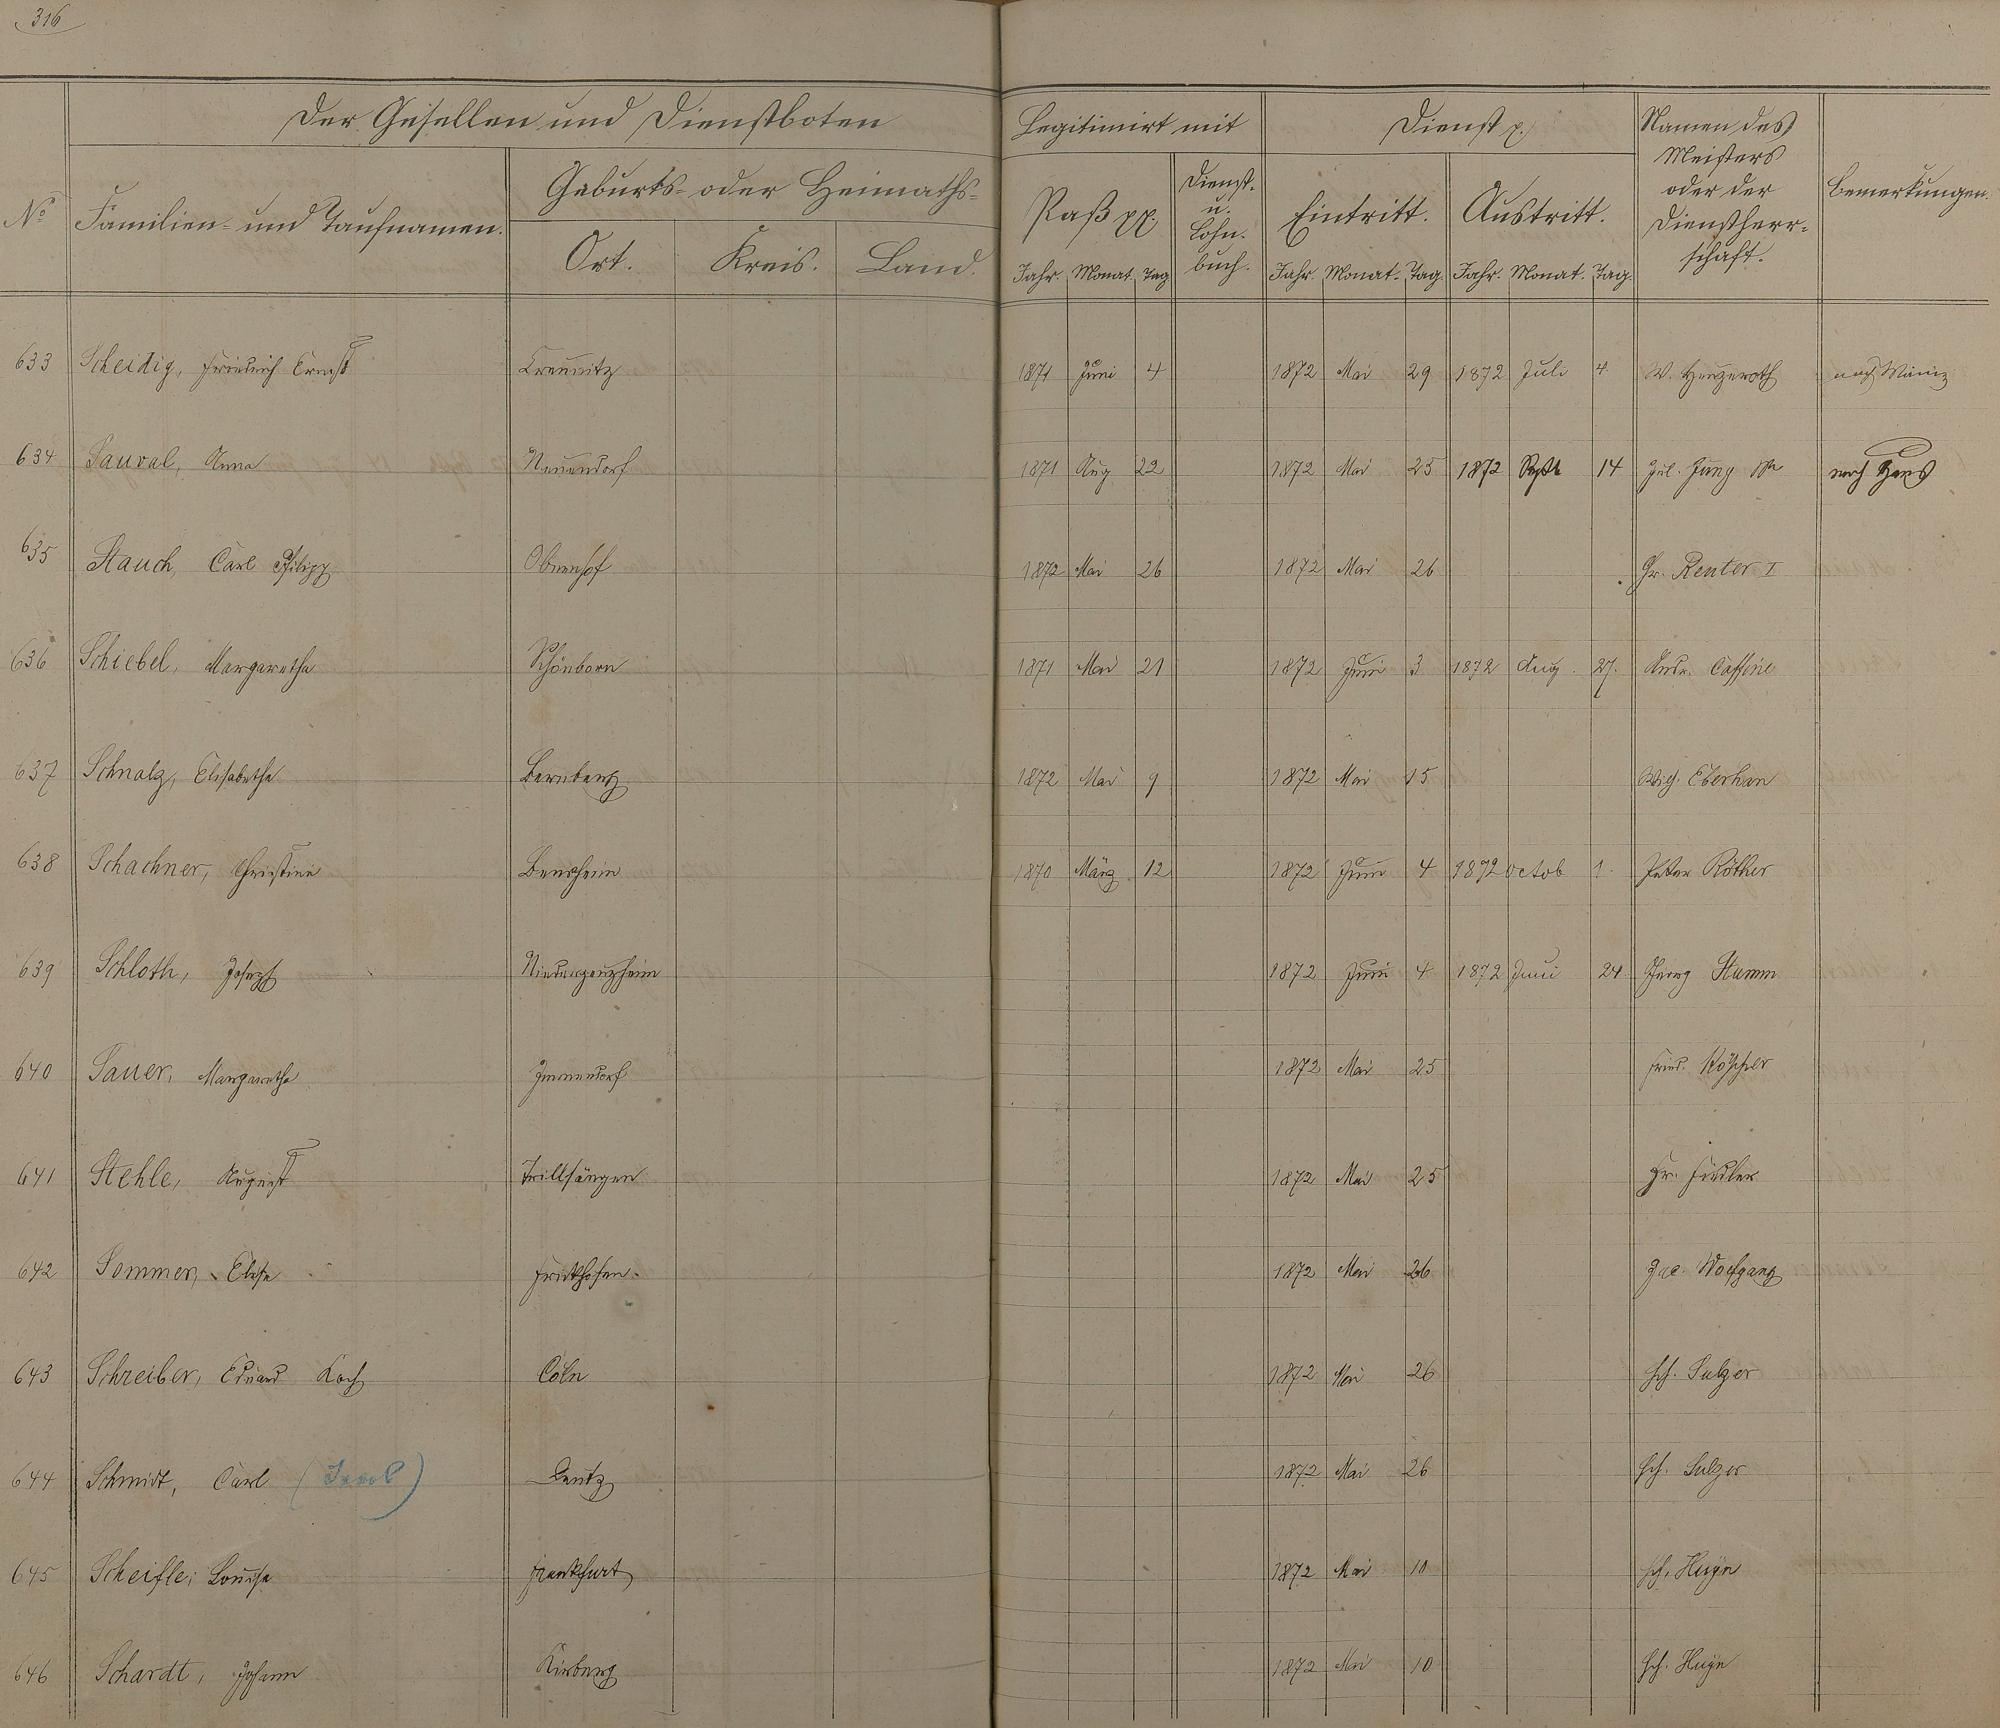 316
Der Gesellen und Dienstboten
Legitimirt mit
Dienst p.
Namen des
Meisters
oder der
Dienstherr-
schaft.
Bemerkungen.
No
Familien- und Taufnamen.
Geburts- oder Heimaths-
Ort. Kreis. Land.
Paß pp.
Dienst-
u.
Lohn-
buch.
Eintritt. Austritt.
Jahr. Monat. Tag Jahr. Monat. Tag Jahr. Monat. Tag.
633 Scheidig, Friedrich Ernst 1871 Juni 4 1872 Mai 29 1872 Juli 4 W. nach Mainz
634 Sauval, Anna Neuendorf 1871 Aug 22 1872 Mai 25 1872 Sept 14 Jul. Jung nach Haus
635 Stauch, Carl Philipp Obernhof 1872 Mai 26 1872 Mai 26 Reuter I
636 Schiebel, Margaretha Schönborn 1871 Mai 21 1872 Juni 3 1872 Aug. 27. Andr.
637 Schnalz, Elisabetha Bernberg 1872 Mai 9 1872 Mai 15 Eberhan
638 Schachner, Christine Bensheim 1870 März 12 1872 Juni 4 1872 Octob 1. Peter Röther
639 Schloth, Joseph 1872 Juni 4 1872 Juni 24 Georg Stumm
640 Sauer, Margaretha Immendorf 1872 Mai 25 Fried.
641 Stehle, August 1872 Mai 25 Fr. Fiedler
642 Sommer, Elise Frickhofen. 1872 Mai 26 Jac. Wolfgang
643 Schreiber, Eduard Koch Cöln 1872 Mai 26 Hch. Sulzer
644 Schmidt, Carl Deutz 1872 Mai 26 Hch. Sulzer
645 Scheifle, Louise Frankfurt 1872 Mai 10 Hch. Huÿn
646 Schardt, Johann Kirberg 1872 Mai 10 Hch. Huÿn